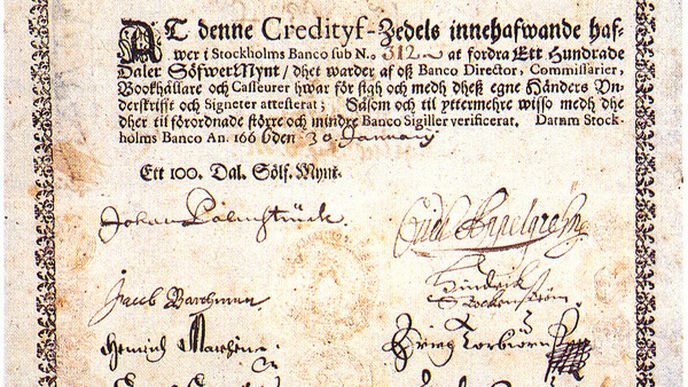 AT denne Credityf-Zedels innehafwande haf-
wer i Stockholms Banco sub N.o 312 at fordra Ett Hundrade
Daler Sölfwer Mynt/ dhet warder af oß Banco Director, Commissarier,
Bookhållare och Casseurer hwar för sigh och medh dheß egne Händers Vn-
derskrifft och Signeter attesterat; Såsom och til yttermehre wisso medh dhe
dher til förordnade större och mindre Banco Sigiller verificerat. Datum Stock-
holms Banco An. 1666 den 30 January
Ett 100. Dal. Sölf. Mynt.
Johan Palmstruck
Jacob Barchman Hindrik
Stockenström
Heinrich